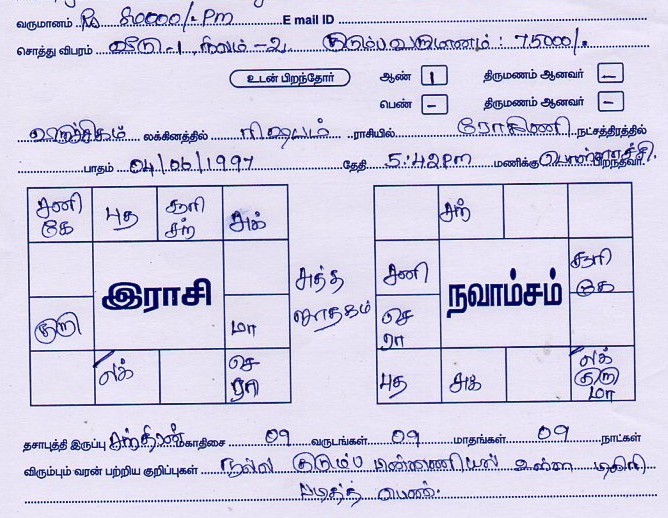 வருமானம் Rs 80000/-Pm E mail ID
சொத்து விபரம் வீடு-1, நிலம்-2, குடும்பவருமானம் : 75000/-
உடன் பிறந்தோர் ஆண் 1 திருமணம் ஆனவர் –
பெண் – திருமணம் ஆனவர் –
விருச்சிகம் லக்கினத்தில் ரிஷபம் ராசியில் ரோகிணி நட்சத்திரத்தில்
பாதம் 04/06/1997 தேதி 5:42Pm மணிக்கு பொள்ளாச்சி பிறந்தவர்.
சனி கே புத சூரி சந் சுக்
இராசி
குரு மா
லக் செ ரா
சுத்த ஜாதகம்
சந்
சனி சூரி கே
நவாம்சம்
செ ரா
புத சுக் லக் குரு மா
தசாபுத்தி இருப்பு சந்திரன் மகாதிசை 09 வருடங்கள் 09 மாதங்கள் 09 நாட்கள்
விரும்பும் வரன் பற்றிய குறிப்புகள் நல்ல குடும்ப பின்னணியில் உள்ள டிகிரி
படித்த பெண்.